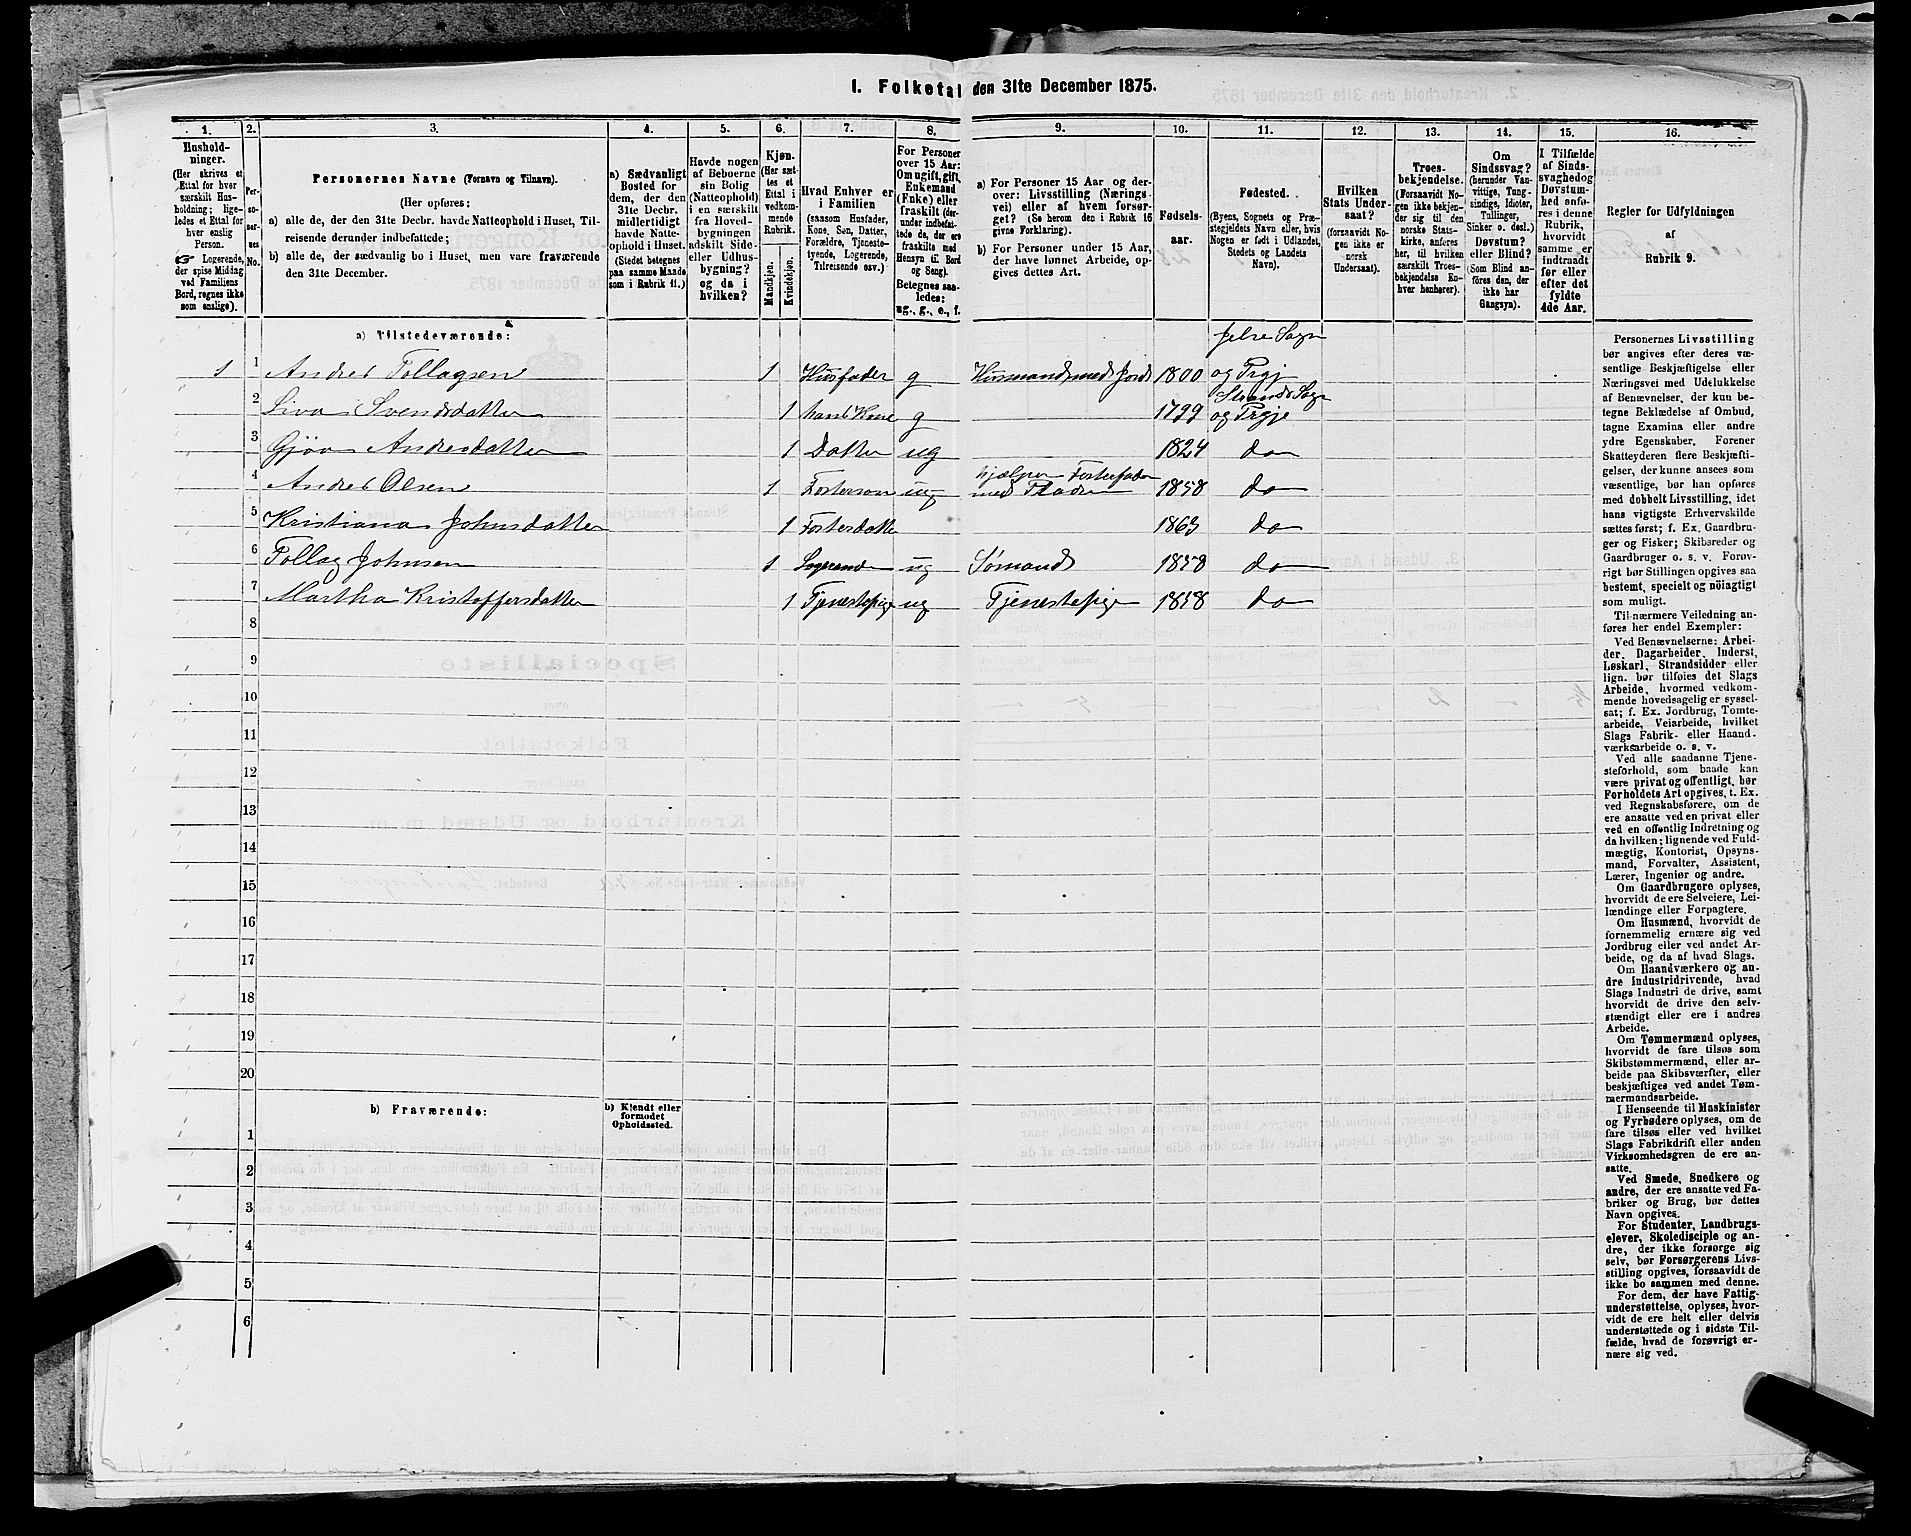 I. Folketal den 31te December 1875.
1. 2. 3. 4. 5. 6. 7. 8. 9. 10. 11. 12. 13. 14. 15. 16.
Husholdninger.
(Her skrives et Ettal for hver særskilt Husholdning; ligeledes et Ettal for hver enslig Person.
☞ Logerende, der spise Middag ved Familiens Bord, regnes ikke som enslige).
Personernes No.
Personernes Navne (Fornavn og Tilnavn).
(Her opføres:
a) alle de, der den 31te Decbr. havde Natteophold i Huset, Tilreisende derunder indbefattede;
b) alle de, der sædvanlig bo i Huset, men vare fraværende den 31te December.
a) Sædvanligt Bosted for dem, der den 31te Decbr. midlertidigt havde Natteophold i Huset. (Stedet betegnes paa samme Maade som i Rubrik 11.)
Havde nogen af Beboerne sin Bolig (Natteophold) i en særskilt fra Hovedbygningen adskilt Side- eller Udhusbygning? og da i hvilken?
Kjøn. (Her sættes et Ettal i vedkommende Rubrik.
Mandkjøn. Kvindekjøn.
Hvad Enhver er i Familien
(saasom Husfader, Kone, Søn, Datter, Forældre, Tjenestetyende, Logerende, Tilreisende osv.)
For Personer over 15 Aar: Om ugift, gift, Enkemand (Enke) eller fraskilt (derunder indbefattede de, der ere fraskilte med Hensyn til Bord og Seng). Betegnes saaledes: ug., g., e., f.
a) For Personer 15 Aar og derover: Livsstilling (Næringsvei) eller af hvem forsørget? (Se herom den i Rubrik 16 givne Forklaring).
b) For Personer under 15 Aar, der have lønnet Arbeide, opgives dettes Art.
Fødselsaar.
Fødested.
(Byens, Sognets og Præstegjeldets Navn eller, hvis Nogen er født i Udlandet, Stedets og Landets Navn).
Hvilken Stats Undersaat?
(forsaavidt Nogen ikke er norsk Undersaat).
Troesbekjendelse.
(Forsaavidt Nogen ikke bekjender sig til den norske Statskirke, anføres her, til hvilken særskilt Troesbekjendelse Enhver henhører).
Om Sindssvag? (herunder Vanvittige, Tungsindige, Idioter, Tullinger, Sinker o. desl.). Døvstum? eller Blind? (Som Blind anføres den, der ikke har Gangsyn).
I Tilfælde af Sindssvaghed og Døvstumhed anføres i denne Rubrik, hvorvidt samme er indtraadt før eller efter det fyldte 4de Aar.
Regler for Udfyldningen
af
Rubrik 9.
a) Tilstedeværende:
Jelse Sogn
1 1 Andres Tollagsen 1 Husfader g Husmand med Jord 1800 og Prgj
2 Siva Svendsdatter 1 hans Kone g 1799 Strands Sogn og Prgje
3 Gjøa Andresdatter 1 Datter ug 1824 do
4 Andres Olsen 1 Fosterson ug hjælper Fosterfader med 1858 do
5 Kristiana Johnsdatter 1 Fosterdatter 1863 do
6 Tollag Johnsen 1 Logerende ug Sømand 1858 do
7 Martha Kristoffersdatter 1 Tjenestepige ug Tjenestepige 1858 do
8
9
10
11
12
13
14
15
16
17
18
19
20
b) Fraværende: b) Kjendt eller formodet Opholdssted.
1
2
3
4
5
6
Personernes Livsstilling
bør angives efter deres væ-
sentlige Beskjæftigelse eller
Næringsvei med Udelukkelse
af Benævnelser, der kun be-
tegne Beklædelse af Ombud,
tagne Examina eller andre
ydre Egenskaber. Forener
Skatteyderen flere Beskjæfti-
gelser, der kunne ansees som
væsentlige, bør han opføres
med dobbelt Livsstilling, idet
hans vigtigste Erhvervskilde
sættes først; f. Ex. Gaardbru-
ger og Fisker; Skibsreder og
Gaardbruger o. s. v. Forøv-
rigt bør Stillingen opgives saa
bestemt, specielt og nöiagtigt
som muligt.
Til nærmere Veiledning an-
føres her endel Exempler:
Ved Benævnelserne: Arbei-
der, Dagarbeider, Inderst,
Løskarl, Strandsidder eller
lign. bør tilføies det Slags
Arbeide, hvormed vedkom-
mende hovedsagelig er syssel-
sat; f. Ex. Jordbrug, Tomte-
arbeide, Veiarbeide, hvilket
Slags Fabrik- eller Haand-
værksarbeide o. s. v.
Ved alle saadanne Tjene-
steforhold, som baade kan
være privat og offentligt, bør
Forholdets Art opgives, t. Ex.
ved Regnskabsførere, om de
ere ansatte ved en privat eller
ved en offentlig Indretning og
da hvilken; lignende ved Fuld-
mægtig, Kontorist, Opsyns-
mand, Forvalter, Assistent,
Lærer, Ingeniør og andre.
Om Gaardbrugere oplyses,
hvorvidt de ere Selveiere, Lei-
lændinge eller Forpagtere.
Om Husmænd, hvorvidt de
fornemmelig ernære sig ved
Jordbrug eller ved andet Ar-
beide, og da af hvad Slags.
Om Haandværkere og an-
dre Industridrivende, hvad
Slags Industri de drive, samt
hvorvidt de drive den selv-
stændigt eller ere i andres
Arbeide.
Om Tømmermænd oplyses,
hvorvidt de fare tilsøs som
Skibstømmermænd, eller ar-
beide paa Skibsværfter, eller
beskjæftiges ved andet Tøm-
mermandsarbeide.
I Henseende til Maskinister
og Fyrbødere oplyses, om de
fare tilsøs eller ved hvilket
Slags Fabrikdrift eller anden
Virksomhedsgren de ere an-
satte.
Ved Smede, Snedkere og
andre, der ere ansatte ved Fa-
briker og Brug, bør dettes
Navn opgives.
For Studenter, Landbrugs-
elever, Skoledisciple og an-
dre, der ikke forsørge sig
selv, bør Forsørgerens Livs-
stilling opgives, forsaavidt de
ikke bo sammen med denne.
For dem, der have Fattig-
understøttelse, oplyses, hvor-
vidt de ere helt eller delvis
understøttede og i sidste Til-
fælde, hvad de forøvrigt er-
nære sig ved.